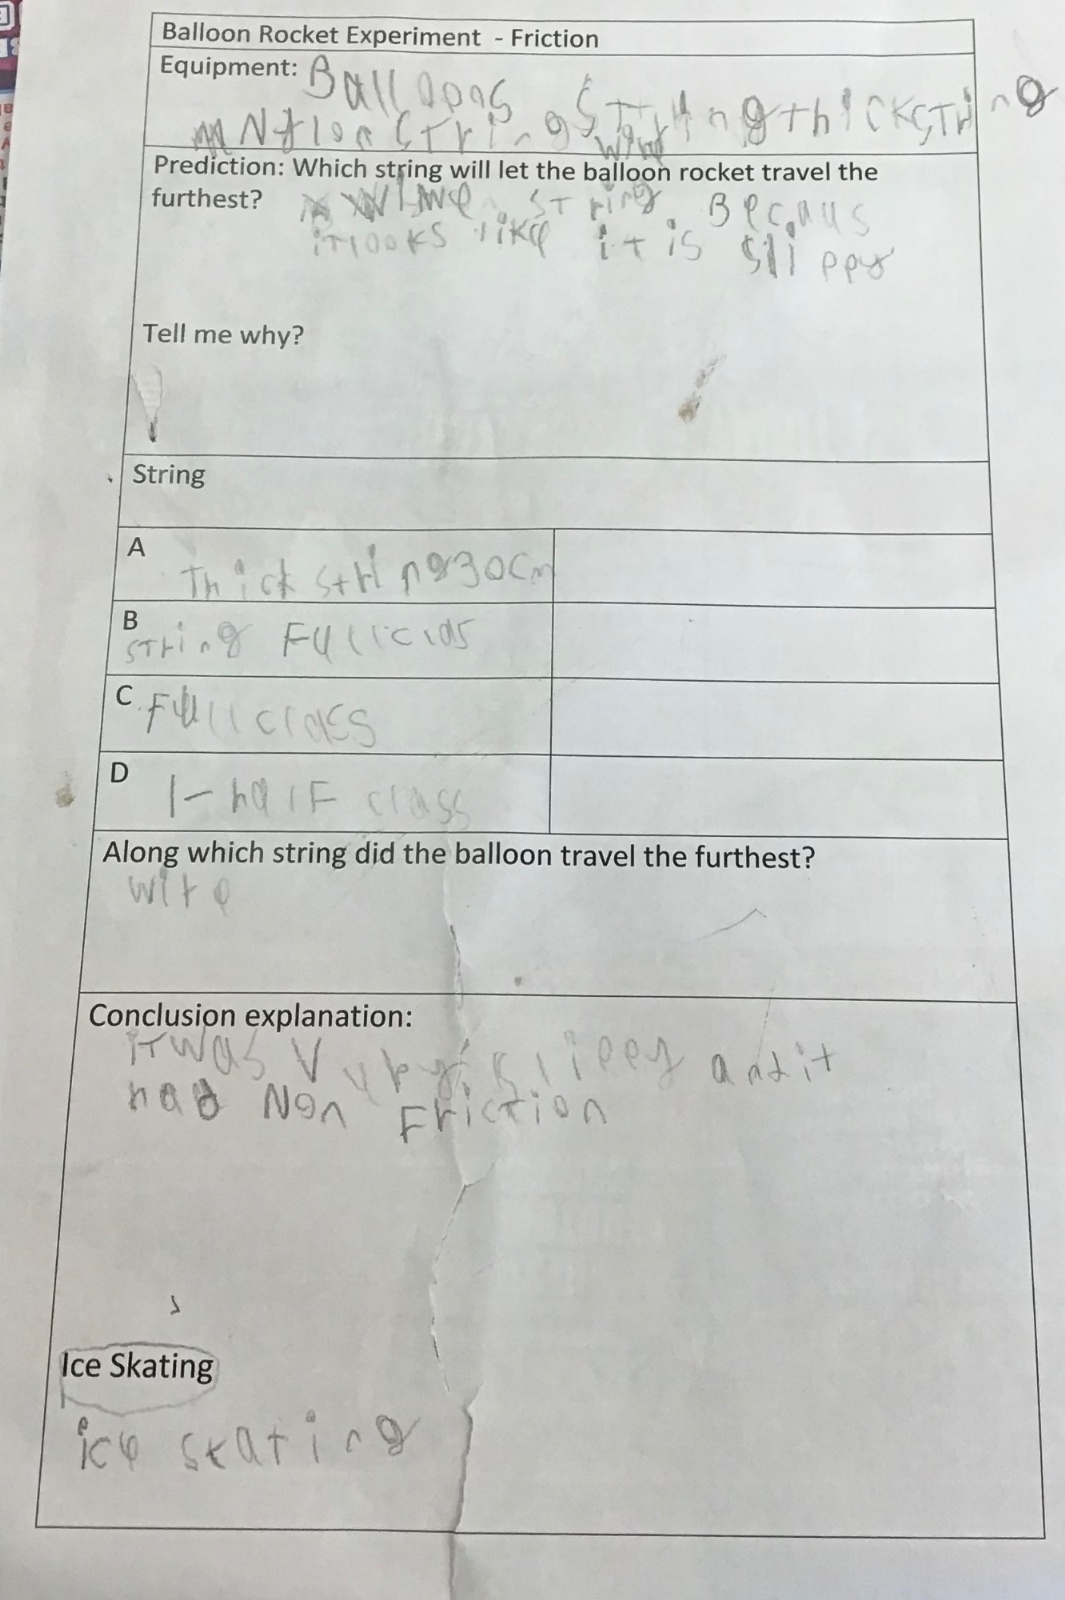 Balloon Rocket Experiment - Friction
Equipment: Balloons String thickString
Nylon String wire
Prediction: Which string will let the balloon rocket travel the
furthest? String. Becaus
it looks like it is slippy
Tell me why?
String
A
Thick string 30cm
B
String Full clas
C Full class
D
1-half class
Along which string did the balloon travel the furthest?
wire
Conclusion explanation:
it was Very slippy and it
had Non Friction
Ice Skating
ice skating